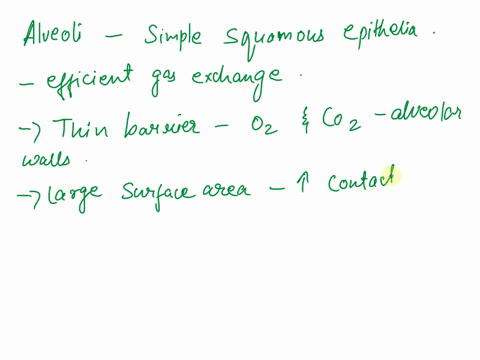 Alveoli - Simple squamous epithelia.
- efficient gas exchange.
-> Thin barrier - O2 & CO2 - alveolar
walls.
-> Large surface area - ↑ contact